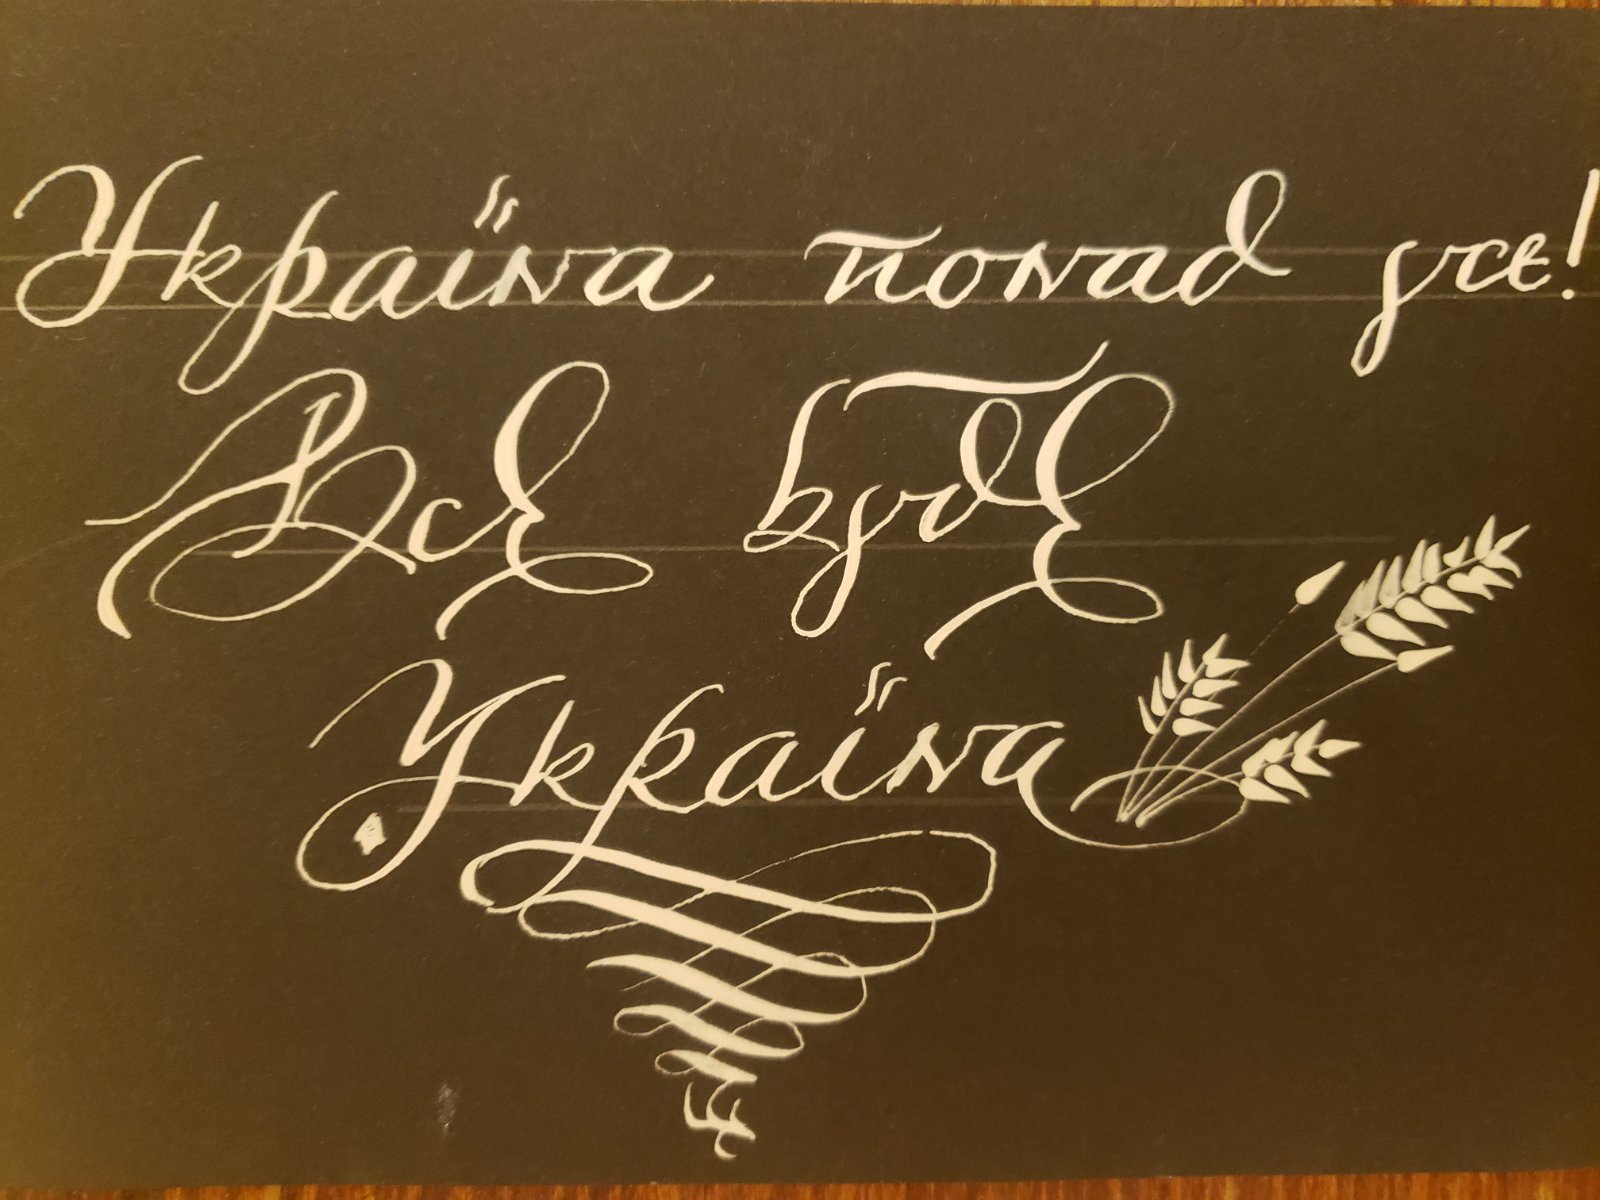 Україна понад усе!
Все буде
Україна